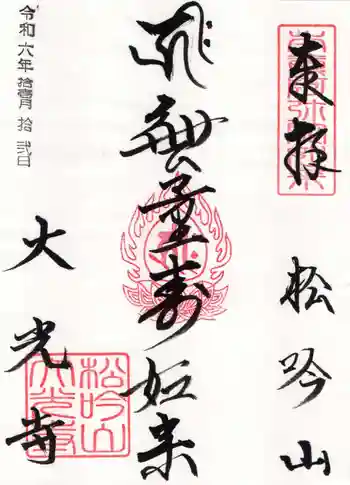 奉拝
松吟山
𑖮𑖿𑖨𑖱𑖾 無量壽如来
大光寺
令和六年拾壹月拾弐日
松吟山
大光寺